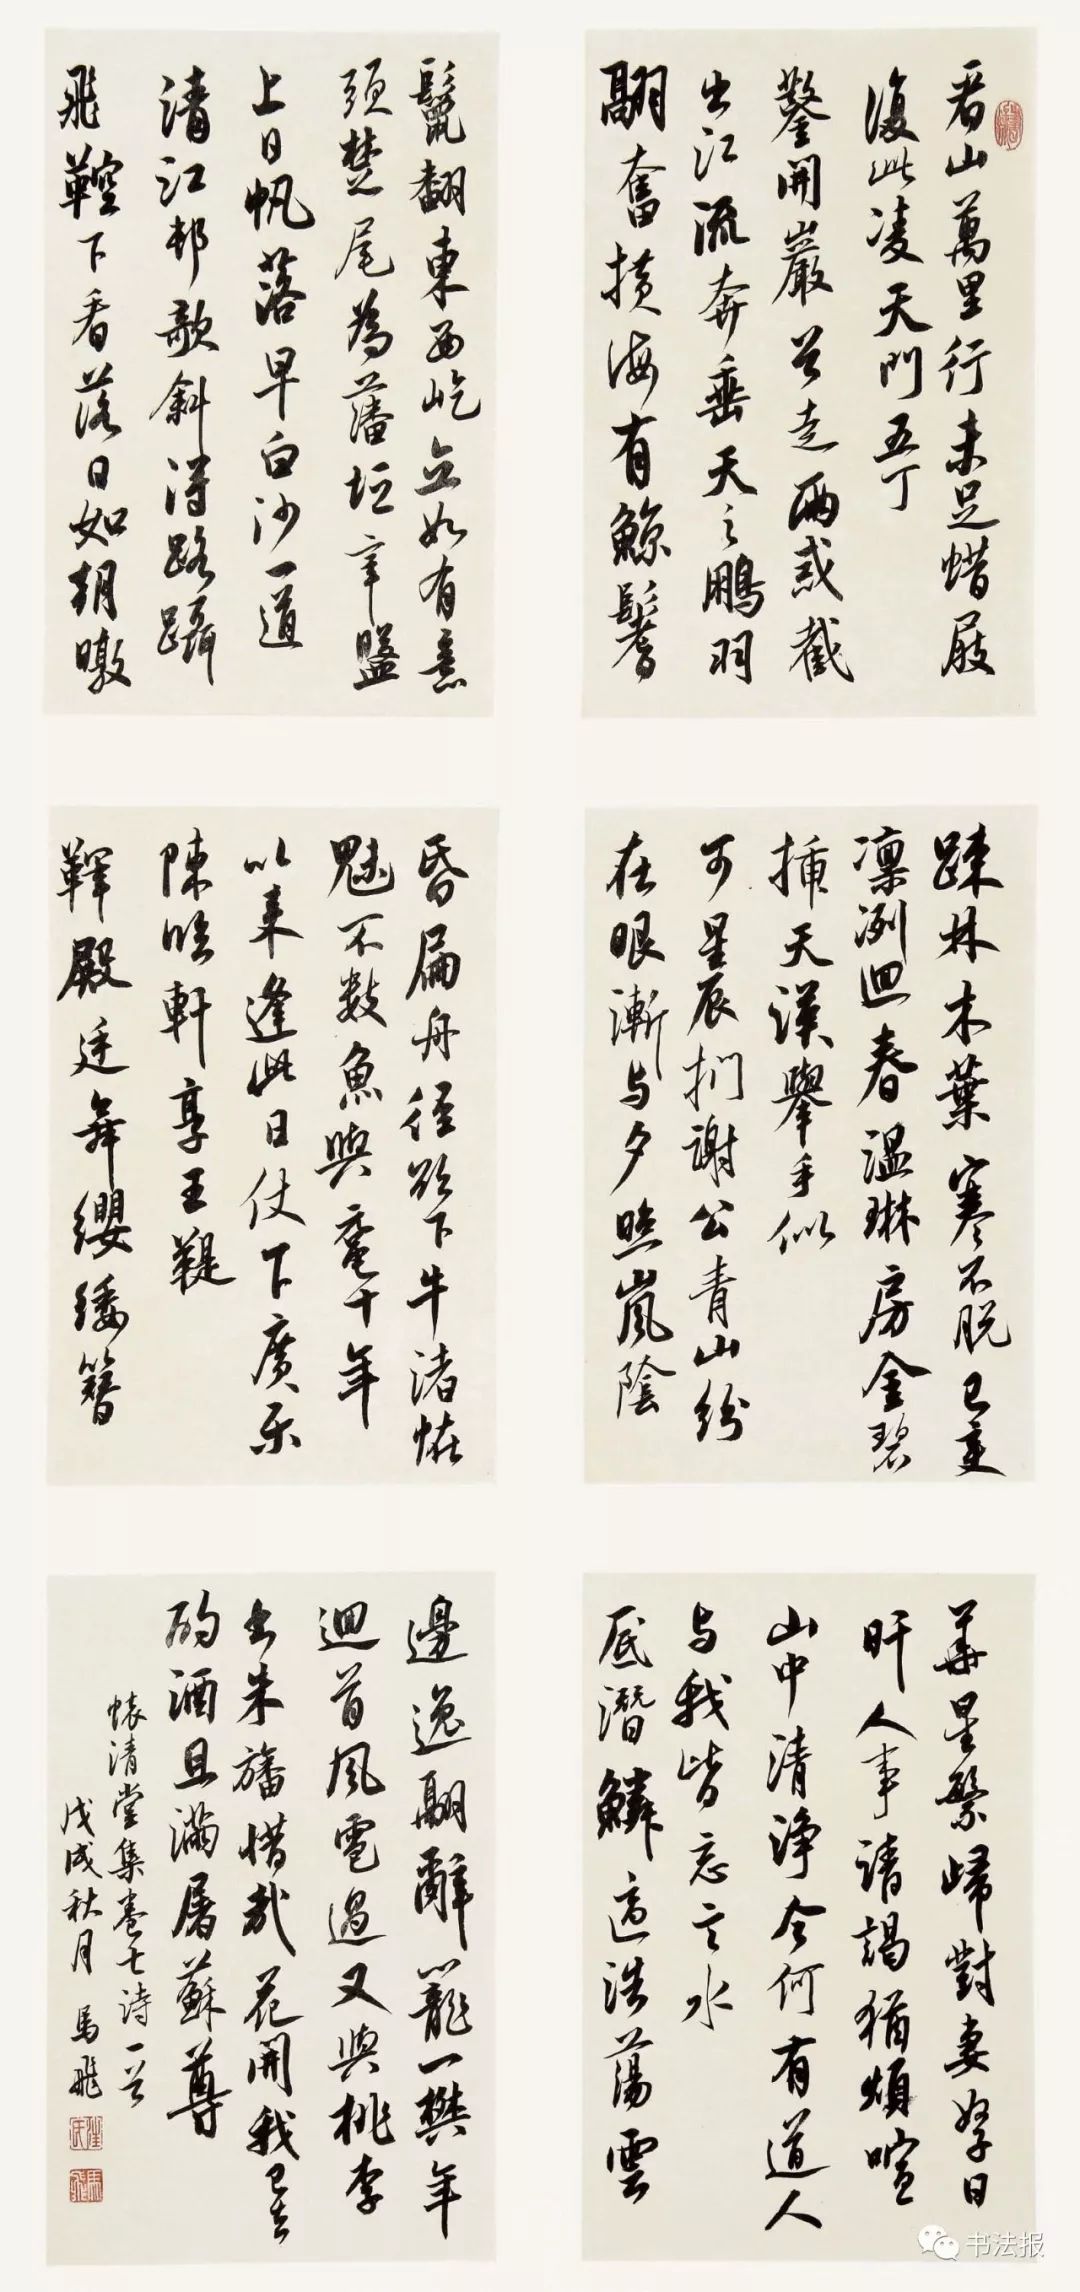 看山萬里行未足蜡屐
復此凌天門五丁
鑿開巖谷走兩崖截
出江流奔垂天之鵬羽
翮奮横海有鯨鬐
鬣翻東西屹立如有意
頭楚尾為藩垣辛盤
上日帆落早白沙一道
清江邨歌斜渡路躡
飛鞚下看落日如朝暾
疎林木葉寒不脱已变
凛冽迴春温琳房金碧
插天漢舉手似
可星辰捫谢公青山纷
在眼漸与夕照嵐陰
昏扁舟径欲下牛渚恠
魅不数魚與黿十年
以来逢此日仗下廣乐
陳临軒享王鞮
鞮殿廷舞纓緌簪
華星繁歸對妻孥日
旰人事请謁猶煩喧
山中清淨今何有道人
与我皆忘言水
底潛鱗适浩蕩雲
邊逸翮辭籠一樊年
迴首風雹過又與桃李
出朱旛惜哉花開我已去
酌酒且滿屠蘇尊
懷清堂集卷七诗一首
戊戌秋月 馬飛
书法报